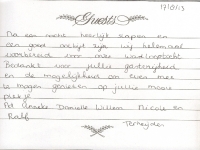 17/8/13
Guests
Na een nacht heerlijk slapen en
een goed ontbijt zijn wij helemaal
voorbereid voor onze wandeltocht
Bedankt voor jullie gastvrijheid
en de mogelijkheid om even mee
te mogen genieten op jullie mooie
plekje
Anneke Danielle Willem Nicole en
Ralf